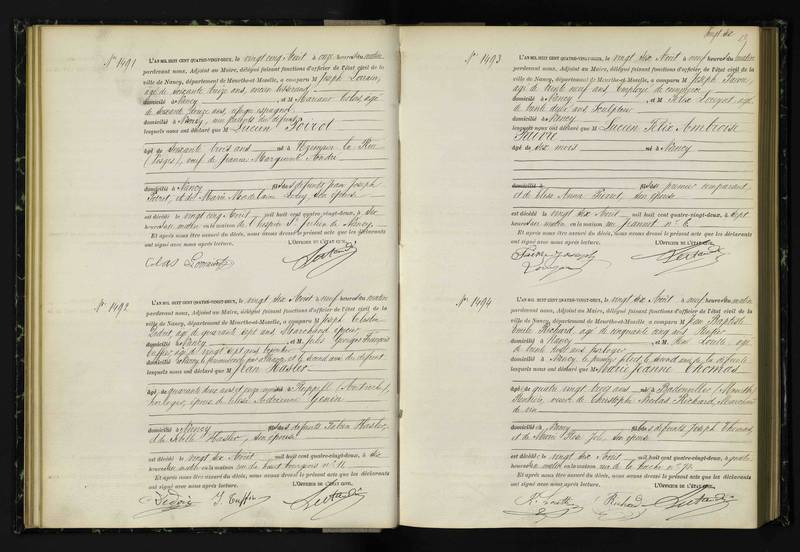 N° 1491
L'AN MIL HUIT CENT QUATRE-VINGT-DEUX, le vingt cinq Août à onze heures du matin
pardevant nous, Adjoint au Maire, délégué faisant fonctions d'officier de l'état civil de la
ville de Nancy, département de Meurthe-et-Moselle, a comparu M Joseph Lorrain,
âgé de soixante treize ans, ancien tisserand
domicilié à Nancy, et M Mariano Colas, âgé
de soixante treize ans, réfugié espagnol
domicilié à Nancy, non parents du défunt
lesquels nous ont déclaré que M Lucien Poirot
âgé de soixante trois ans né à
(Vosges), veuf de Jeanne Marguerite André
domicilié à Nancy fils des défunts Jean Joseph
Poirot, et de Marie Magdelaine, son épouse
est décédé le vingt cinq Août mil huit cent quatre-vingt-deux, à six
heures du matin en la maison de l'hospice St Julien de Nancy
Et après nous être assuré du décès, nous avons dressé le présent acte que les déclarants
ont signé avec nous après lecture. L'OFFICIER DE L'ÉTAT CIVIL,
Colas
N° 1492
L'AN MIL HUIT CENT QUATRE-VINGT-DEUX, le vingt six Août à neuf heures du matin
pardevant nous, Adjoint au Maire, délégué faisant fonctions d'officier de l'état civil de la
ville de Nancy, département de Meurthe-et-Moselle, a comparu M Joseph
âgé de quarante sept ans, Marchand épicier,
domicilié à Nancy, et M Jules Georges François
âgé de vingt sept ans
domicilié à Nancy, le premier et le second ami du défunt
lesquels nous ont déclaré que M Jean Hasler
âgé de quarante deux ans né à (Autriche),
horloger, époux de Elise Adrienne Génin
domicilié à Nancy fils des défunts Fabien Hasler,
et de Sibille Hasler, son épouse
est décédé le vingt six Août mil huit cent quatre-vingt-deux, à six
heures du matin en la maison rue du haut bourgeois n° 11
Et après nous être assuré du décès, nous avons dressé le présent acte que les déclarants
ont signé avec nous après lecture. L'OFFICIER DE L'ÉTAT CIVIL,
N° 1493
L'AN MIL HUIT CENT QUATRE-VINGT-DEUX, le vingt six Août à neuf heures du matin
pardevant nous, Adjoint au Maire, délégué faisant fonctions d'officier de l'état civil de la
ville de Nancy, département de Meurthe-et-Moselle, a comparu M Joseph
âgé de trente neuf ans, Employé de commerce
domicilié à Nancy, et M Felix, âgé
de trente ans Sculpteur
domicilié à Nancy
lesquels nous ont déclaré que M Lucien Felix Ambroise
âgé de dix mois né à Nancy
domicilié à fils du premier comparant
et de Elise Anna, son épouse
est décédé le vingt six Août mil huit cent quatre-vingt-deux, à sept
heures du matin en la maison rue Jeannot n° 6
Et après nous être assuré du décès, nous avons dressé le présent acte que les déclarants
ont signé avec nous après lecture. L'OFFICIER DE L'ÉTAT CIVIL,
N° 1494
L'AN MIL HUIT CENT QUATRE-VINGT-DEUX, le vingt six Août à neuf heures du matin
pardevant nous, Adjoint au Maire, délégué faisant fonctions d'officier de l'état civil de la
ville de Nancy, département de Meurthe-et-Moselle, a comparu M Jean Baptiste
Emile Richard, âgé de cinquante cinq ans
domicilié à Nancy, et M, âgé
de trente huit ans horloger
domicilié à Nancy, le premier fils et le second ami de la défunte
lesquels nous ont déclaré que Marie Jeanne Thomas
âgée de quatre vingt trois ans née à Badonviller (Meurthe)
Rentière, veuve de Christophe Nicolas Richard, Marchand
de vin
domiciliée à Nancy fille des défunts Joseph Thomas,
et de Marie Rose, son épouse
est décédée le vingt six Août mil huit cent quatre-vingt-deux, à quatre
heures du matin en la maison rue de la hache n° 70
Et après nous être assuré du décès, nous avons dressé le présent acte que les déclarants
ont signé avec nous après lecture. L'OFFICIER DE L'ÉTAT CIVIL,
Richard